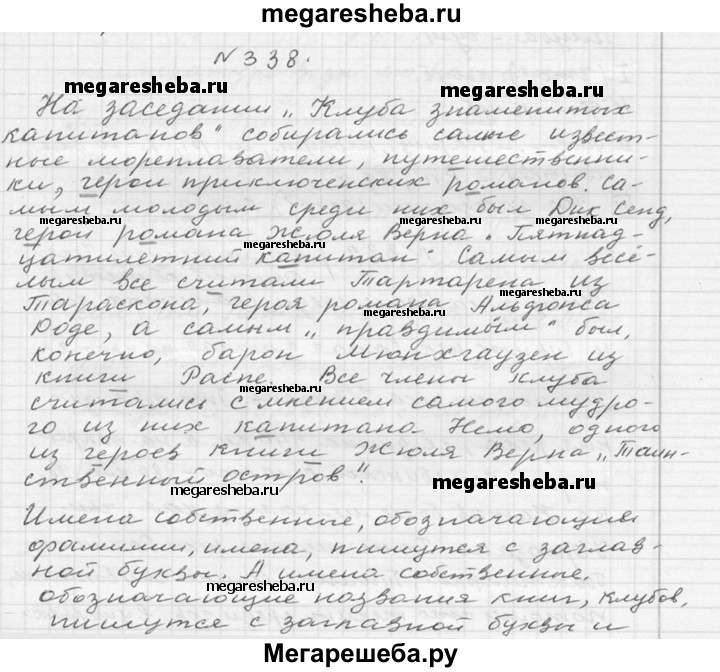 megaresheba.ru
№ 338.
megaresheba.ru
megaresheba.ru
На заседании „Клуба знаменитых
капитанов" собирались самые извест-
ные мореплаватели, путешественни-
ки, герои приключенских романов. Са-
мым молодым среди них был Дик Сенд,
megaresheba.ru
megaresheba.ru
герой романа Жюля Верна „Пятнад-
цатилетний капитан" Самым весё-
лым все считали Тартарена из
Тараскона, героя романа Альфонса
Доде, а самым „правдимым" был,
megaresheba.ru
конечно, барон Мюнхгаузен из
книги Распе. Все члены клуба
megaresheba.ru
считались с мнением самого мудро-
го из них капитана Немо, одного
из героев книги Жюля Верна „Таин-
ственный остров".
megaresheba.ru
megaresheba.ru
Имена собственные, обозначающие
фамилии, имена, пишутся с заглав-
ной буквы. А имена собственные,
megaresheba.ru
обозначающие названия книг, клубов,
пишутся с заглавной буквы и
Мегарешеба.ру